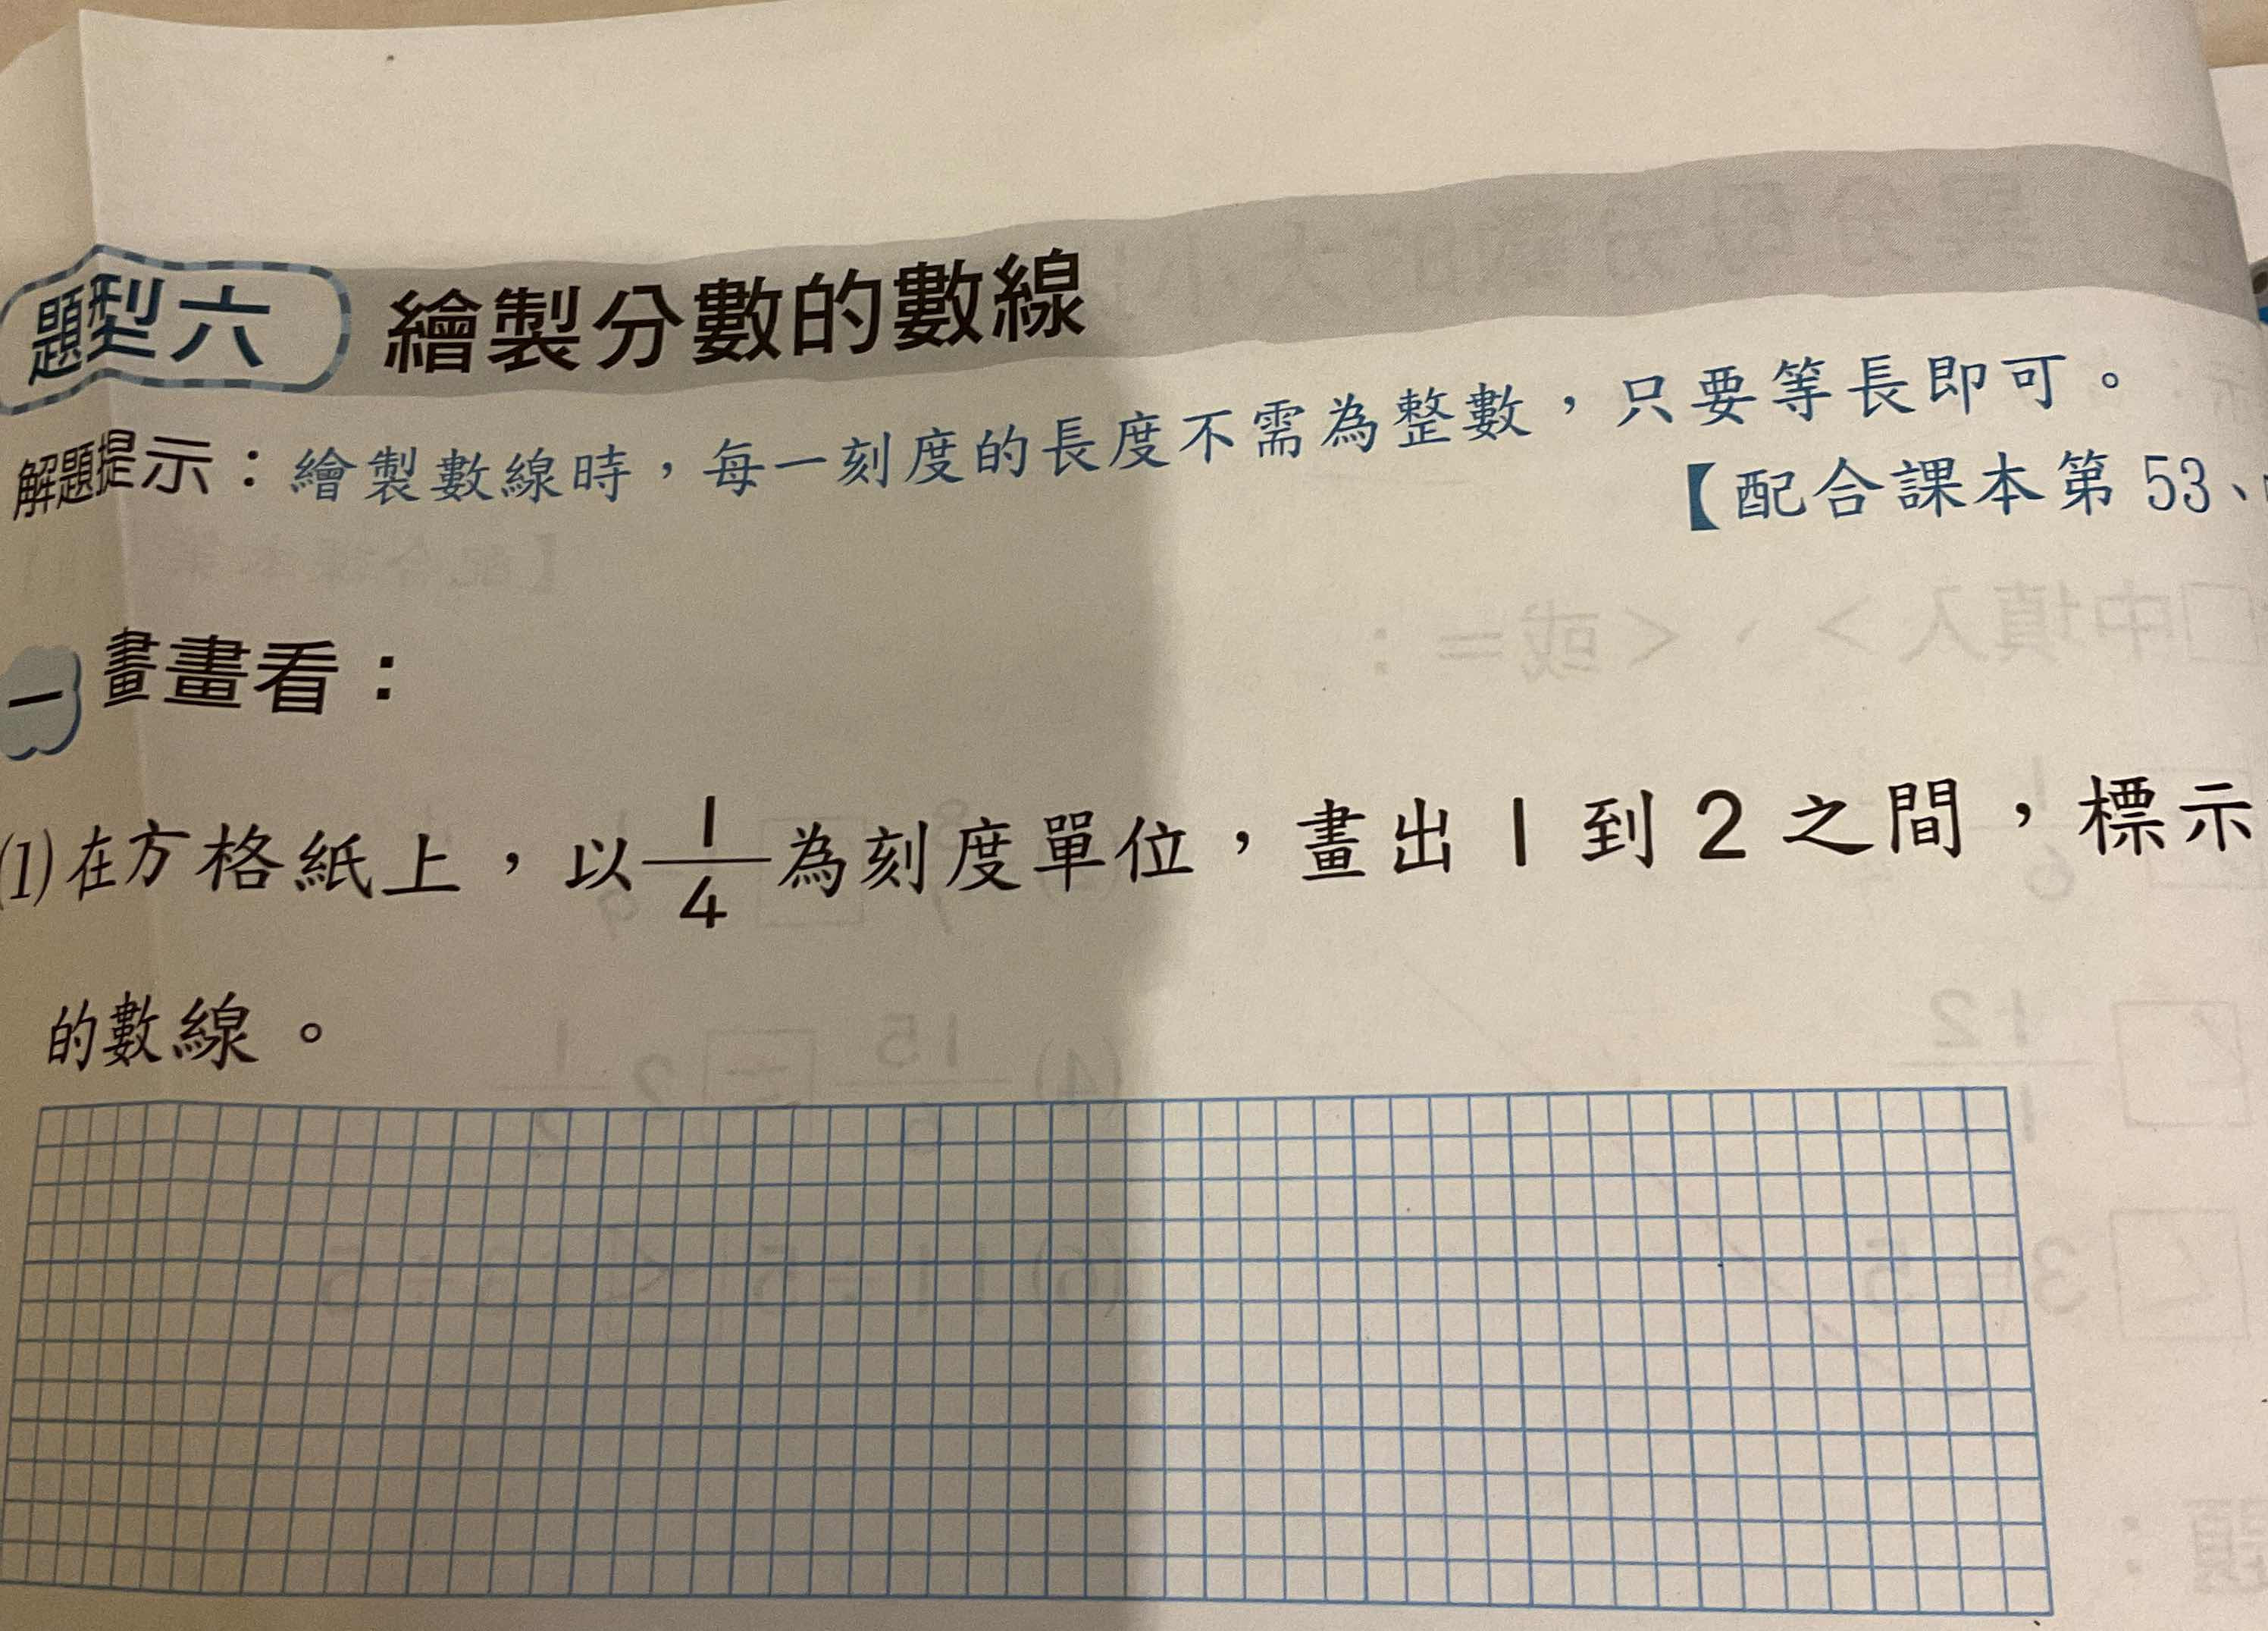 題型六 繪製分數的數線
解題提示：繪製數線時，每一刻度的長度不需為整數，只要等長即可。
【配合課本第 53、
一 畫畫看：
(1)在方格紙上，以1/4為刻度單位，畫出 1 到 2 之間，標示
的數線。